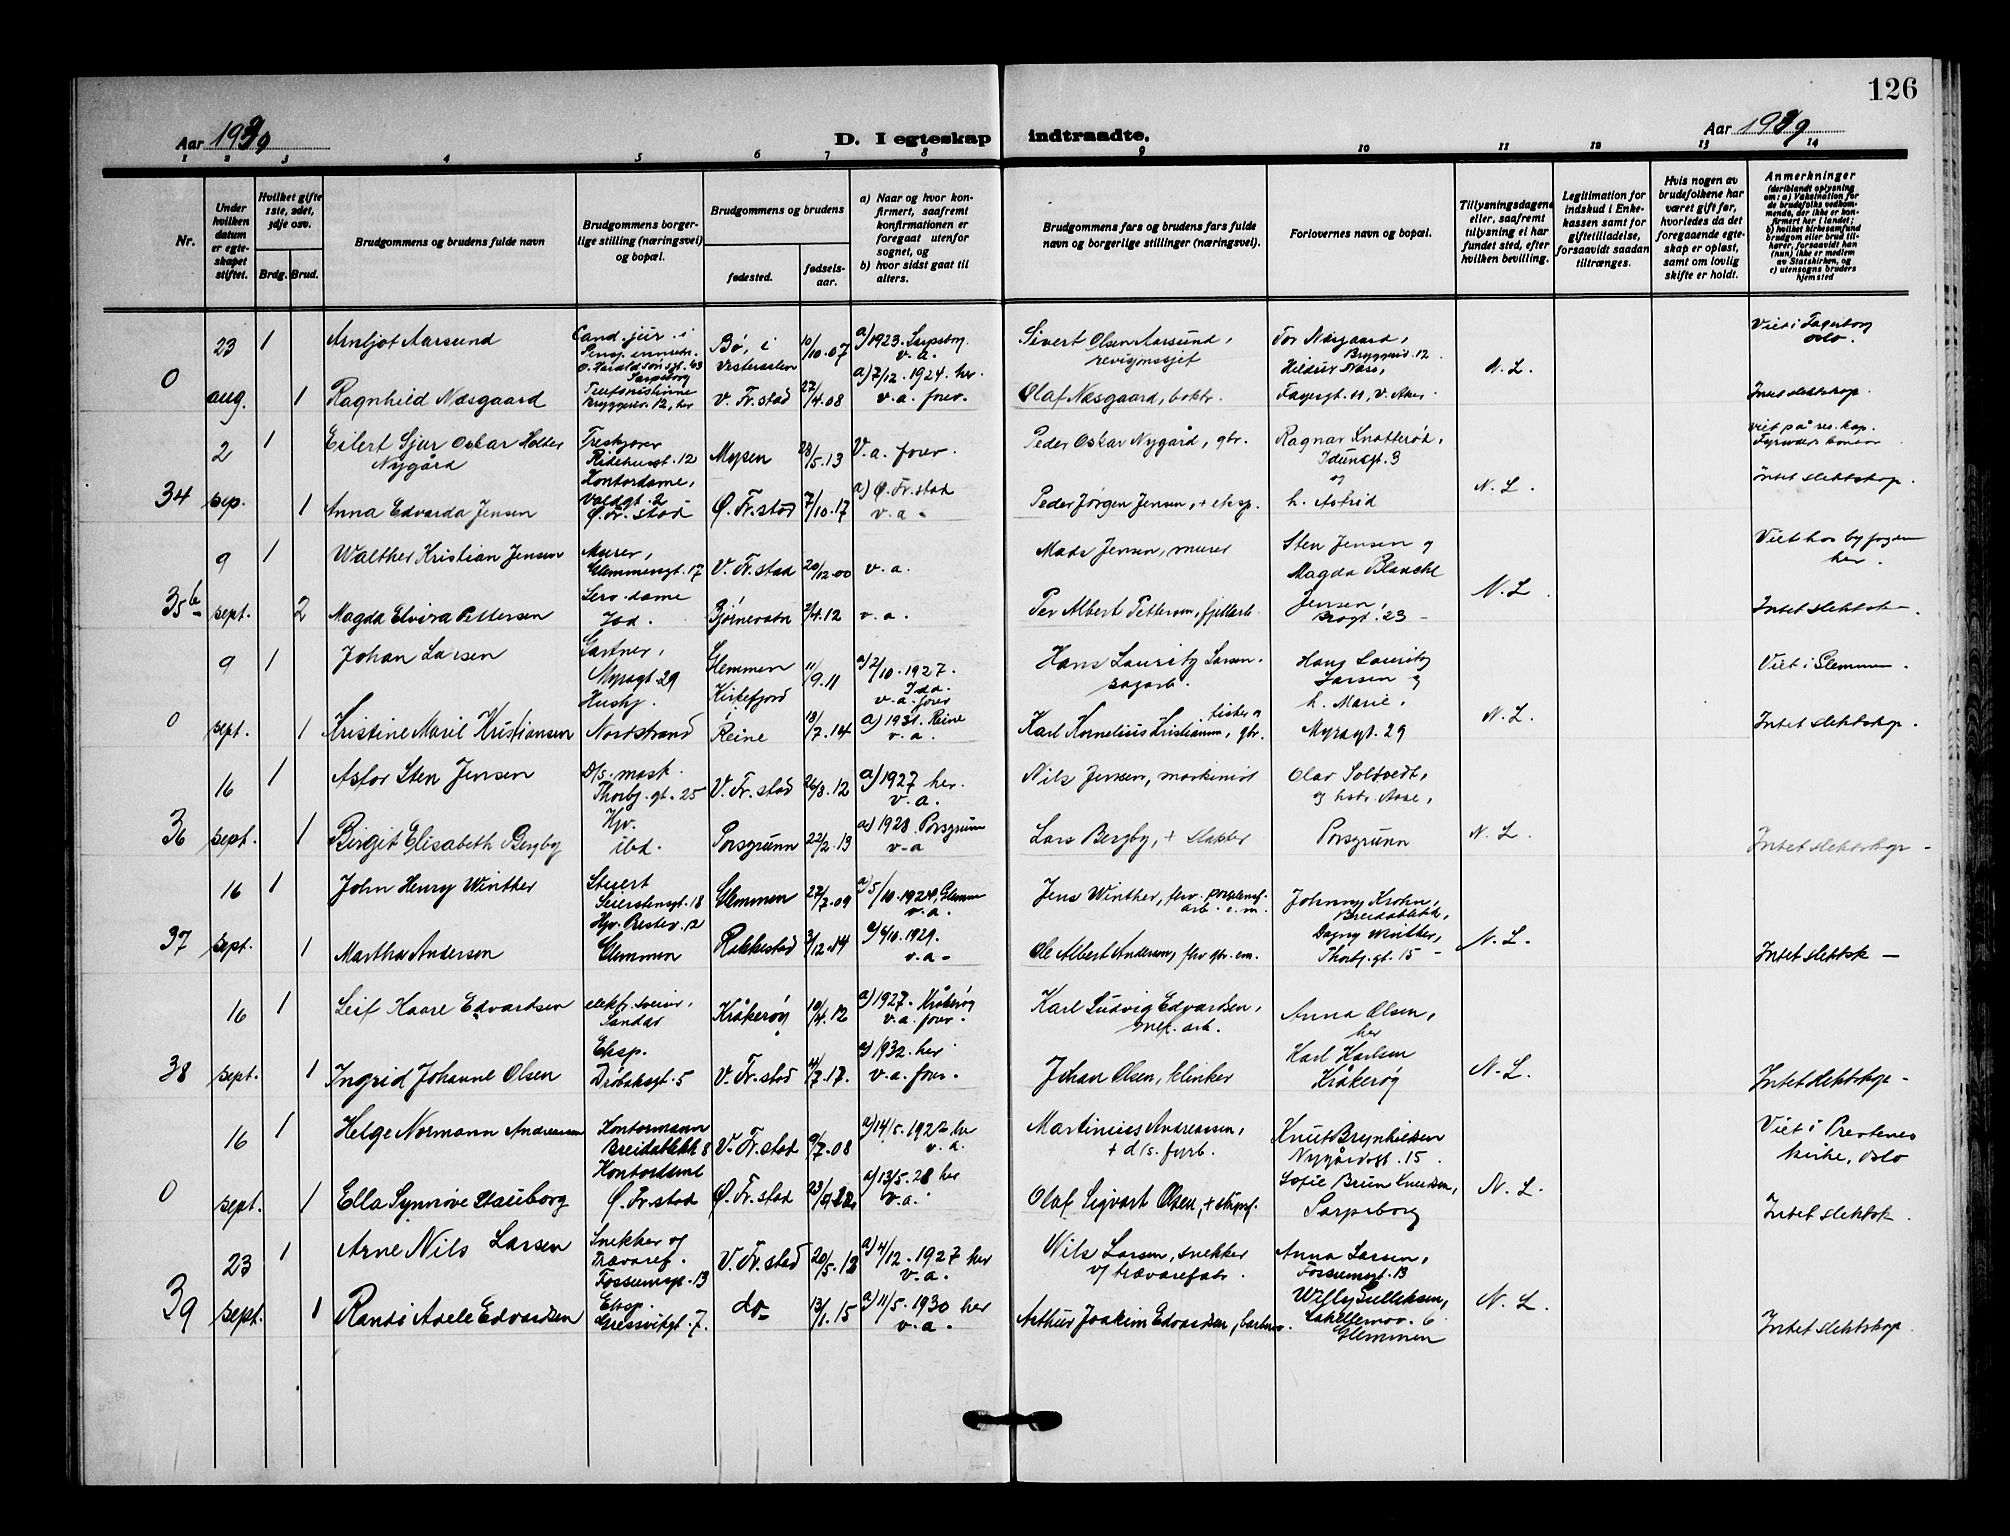 126
Aar 1939
D. I egteskap indtraadte.
Aar 1939
1 2 3 4 5 6 7 8 9 10 11 12 13 14
Nr.
Under hvilken datum er egteskapet stiftet.
Hvilket gifte 1ste, 2det, 3dje osv.
Brdg. Brud.
Brudgommens og brudens fulde navn
Brudgommens borgerlige stilling (næringsvei) og bopæl.
Brudgommens og brudens
fødested.
fødselsaar.
a) Naar og hvor konfirmert, saafremt konfirmationen er foregaat utenfor sognet, og
b) hvor sidst gaat til alters.
Brudgommens fars og brudens fars fulde navn og borgerlige stillinger (næringsvei).
Forlovernes navn og bopæl.
Tillysningsdagene eller, saafremt tillysning ei har fundet sted, efter hvilken bevilling.
Legitimation for indskud i Enkekassen samt for giftetilladelse, forsaavidt saadan tiltrænges.
Hvis nogen av brudefolkene har været gift før, hvorledes da det foregaaende egteskap er opløst, samt om lovlig skifte er holdt.
Anmerkninger
(deriblandt oplysning om: a) Vaksination for de brudefolks vedkommende, der ikke er konfirmert her i landet; b) hvilket kirkesamfund brudgom eller brud tilhører, forsaavidt han (hun) ikke er medlem av Statskirken, og c) utensogns bruders hjemsted
0 23 aug.
1 Arnljot Aarsund
Cand. jur. i
Sarpsborg
Bø, i Vesteraalen 10/10.07
a) 1923. Sarpsborg v. a.
Sivert Olsen Aarsund, revisjonssjef
Tor Næsgaard, Bryggeriv. 12
Hildur Næss,
N. L.
Viet i Fagerborg Oslo.
1 Ragnhild Næsgaard
Telefonistinne Bryggeriv. 12, her
V. Fr.stad 27/4.08
a) 7/12. 1924. her. v. a. forev.
Olaf Næsgaard, boktr.
Fagergt. 11, V. Aker
Intet slektskap.
34 2 sep.
1 Eilert Sjur Oskar Holter Nygård
Ridehusgt. 12
Mysen 28/5.13
V. a. forev.
Peder Oskar Nygård, gbr.
Ragnar Snatterød, Idunsgt. 3
N. L.
1 Anna Edvarda Jensen
Kontordame, Voldgt. 2 Ø. Fr. stad
Ø. Fr. stad 7/10.17
a) Ø. Fr. stad v. a.
Peder Jørgen Jensen, + eksp.
og h. Astrid
Intet slektskap.
35b 9 sept.
1 Walther Kristian Jensen
Murer, Glemmengt. 17
V. Fr. stad 20/12.00
v. a.
Mads Jensen, murer
Sten Jensen og Magda Blanche Jensen, Brogt. 23
N. L.
Viet hos byfogden her.
2 Magda Elvira Pettersen
Serv. dame Ibd.
Bjørnevatn 2/4.12
v. a.
Per Albert Pettersen, fjellarb.
Intet slektsk.
0 9 sept.
1 Johan Larsen
Gartner, Myragt. 29
Glemmen 11/9.11
a) 2/10. 1927. Ida. v. a. forev
Hans Lauritz Larsen. sagarb.
Hans Lauritz Larsen og h. Marie, Myragt. 29
N. L.
Viet i Glemmen.
1 Kristine Maril Kristiansen
Hushj. Nordstrand
Kirkefjord i Reine 18/7.14
a) 1931. Reine v. a.
Karl Kornelius Kristiansen, fisker og gbr.
Intet slektskap.
36 16 sept.
1 Astor Sten Jensen
D/s. mask. Thorbj. gt. 25
V. Fr. stad 26/8.12
a) 1927 her. v. a.
Nils Jensen, maskinist
Olav Soltvedt, og hstr. Aase, Porsgrunn
N. L.
1 Birgit Elisabeth Bergby
Hjv. ibd.
Porsgrunn 22/2.13
a) 1928. Porsgrunn v. a
Lars Bergby, + slakter
Intet slektskap
37 16 sept.
1 John Henry Winther
Stuert Seierstensgt. 18
Glemmen 27/7.09
a) 5/10. 1924, Glemm v. a.
Jens Winther, fhv. porselensf. arb. e. m.
Johnny Krohn, Breidablikk,
Dagny Winther, Thorbj. gt. 15
N. L.
1 Martha Andersen
Hjv. Prestev. 12 Glemmen
Rakkestad 3/12.14
a) 4/10. 1929. v. a.
Ole Albert Andersen, fhv gbr. em.
Intet slektsk
38 16 sept.
1 Leif Kaare Edvardsen
elektr. sveiser, Sandar
Kråkerøy 10/4.12
a) 1927. Kråkerøy v. a. forev.
Karl Ludvig Edvardsen, mek. arb.
Anna Olsen, her
Karl Karlsen Kråkerøy
N. L.
1 Ingrid Johanne Olsen
Eksp. Drøbaksgt. 5
V. Fr. stad 4/7.17.
a) 1932. her v. a. forev.
Johan Olsen, klinker
Intet slektskap
0 16 sept.
1 Helge Normann Andreassen
Kontormann Breidablikk 8
V. Fr. stad 9/7.08
a) 14/5. 1922 her v. a.
Martinius Andreassen, + d/s. fyrb.
Knut Brynhildsen Nygårdsgt. 15
Sofie Brun Knudsen, Sarpsborg
N. L.
Viet i Prestenes kirke, Oslo
1 Ella Synnøve Stauborg
Kontordame Ø. Fr. stad
Ø. Fr. stad
a) 13/5. 28 her v. a.
Olaf Sigvart Olsen,
Intet slektsk.
39 23 sept.
1 Arne Nils Larsen
Snekker og Trævaref. Fossumsgt. 13
V. Fr. stad 20/5.12
a) 4/12. 1927 her v. a.
Nils Larsen, snekker og trævarefabr.
Anna Larsen, Fossumsgt. 13
N. L.
1 Randi Adele Edvardsen
Eksp. Gressvikgt. 7.
do 13/1.15
a) 11/5. 1930 her v. a.
Arthur Joakim Edvardsen, barberer.
Willy Gulliksen, Glemmen
Intet slektskap